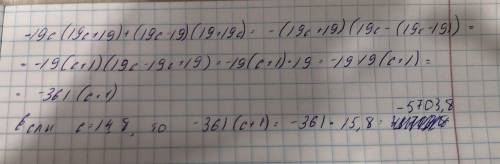 -19c(19c+19)+(19c-19)(19+19c) = -(19c+19)(19c-(19c-19) =
= -19(c+1)(19c-19c+19) = -19(c+1)·19 = -19·19(c+1) =
= -361(c+1)
-5703,8
Если c=14,8, то -361(c+1) = -361·15,8 =